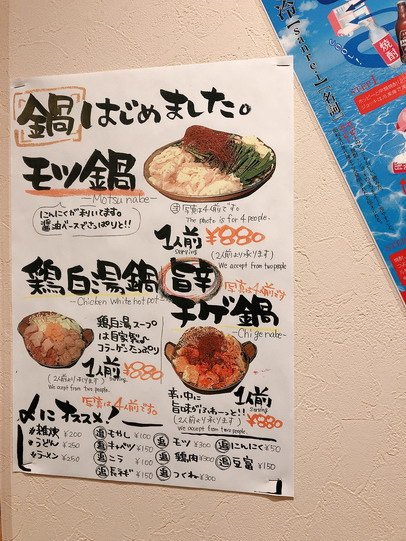 鍋はじめました。
モツ鍋
-Motsu nabe-
にんにくが利いてます。
醤油ベースでさっぱりと!!
注 写真は4人前です。
The photo is for 4 people.
1人前 ¥880
serving
(2人前より承ります)
We accept from two people
鶏白湯鍋
-Chicken white hot pot-
鶏白湯スープ
は自家製♪
コラーゲンたっぷり
1人前 ¥880
serving
(2人前より承ります)
We accept from two people.
写真は4人前です。
旨辛
写真は4人前です
チゲ鍋
-Chige nabe-
辛い中に
旨味がふわーっと!!
1人前
serving
(2人前より承ります) ¥880
We accept from two people.
〆にオススメ!
*雑炊 ¥200
*うどん ¥250
*ラーメン ¥250
追 もやし ¥100
追 キャベツ ¥150
追 ニラ ¥100
追 長ネギ ¥150
追 モツ ¥300
追 鶏肉 ¥300
追 つくね ¥300
追 にんにく ¥50
追 豆腐 ¥150
冷【sanrei】名詞
焼酎